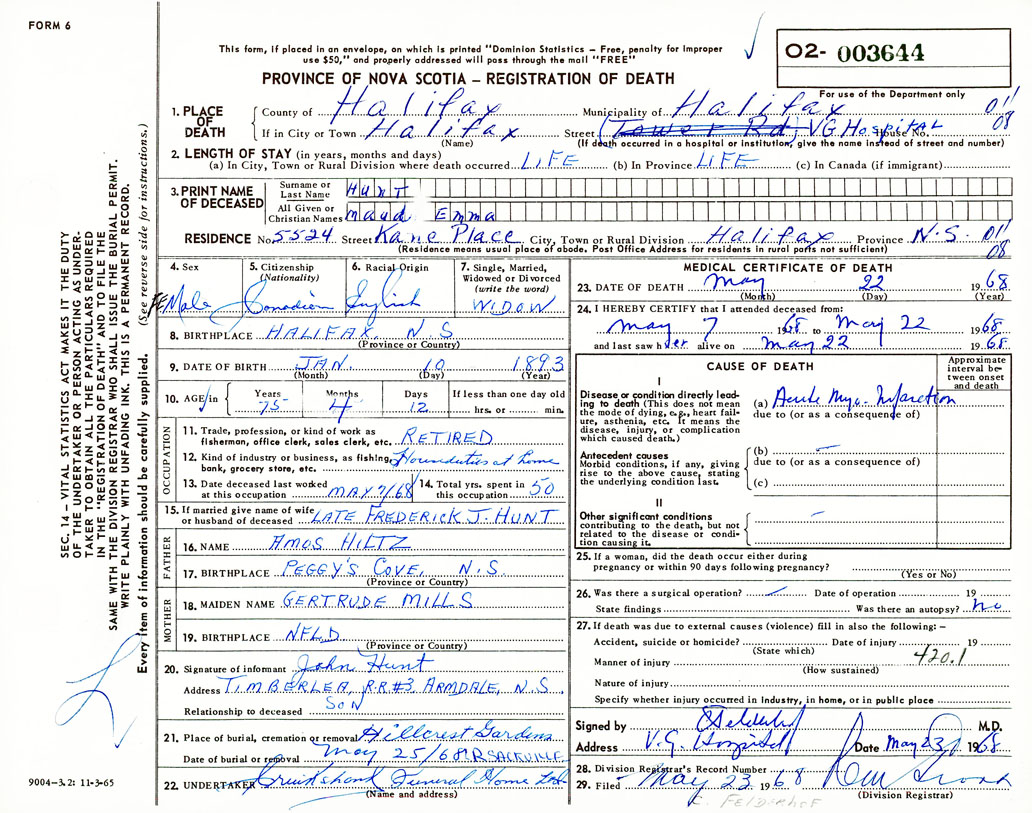 FORM 6
This form, if placed in an envelope, on which is printed "Dominion Statistics – Free, penalty for improper
use $50," and properly addressed will pass through the mail "FREE"
PROVINCE OF NOVA SCOTIA – REGISTRATION OF DEATH
02- 003644
For use of the Department only
1. PLACE OF DEATH
County of Halifax Municipality of Halifax 011
If in City or Town Halifax Street (Tower Rd) VG Hospital House No. 08
(Name) (If death occurred in a hospital or institution, give the name instead of street and number)
2. LENGTH OF STAY (in years, months and days)
(a) In City, Town or Rural Division where death occurred LIFE (b) In Province LIFE (c) In Canada (if immigrant)
3. PRINT NAME OF DECEASED
Surname or Last Name HUNT
All Given or Christian Names Maud Emma
RESIDENCE No. 5524 Street Kane Place City, Town or Rural Division Halifax Province N.S. 011
(Residence means usual place of abode. Post Office Address for residents in rural parts not sufficient) 08
4. Sex FEMale
5. Citizenship (Nationality) Canadian
6. Racial Origin English
7. Single, Married, Widowed or Divorced (write the word) WIDOW
8. BIRTHPLACE HALIFAX, N.S.
(Province or Country)
9. DATE OF BIRTH JAN. 10 1893
(Month) (Day) (Year)
10. AGE in Years 75 Months 4 Days 12 If less than one day old hrs. or min.
OCCUPATION
11. Trade, profession, or kind of work as
fisherman, office clerk, sales clerk, etc. RETIRED
12. Kind of industry or business, as fishing,
bank, grocery store, etc. Houseduties at home
13. Date deceased last worked
at this occupation MAY 7/68
14. Total yrs. spent in
this occupation 50
15. If married give name of wife
or husband of deceased LATE FREDERICK J. HUNT
FATHER
16. NAME AMOS HILTZ
17. BIRTHPLACE PEGGY'S COVE, N.S.
(Province or Country)
MOTHER
18. MAIDEN NAME GERTRUDE MILLS
19. BIRTHPLACE NFLD
(Province or Country)
20. Signature of informant John Hunt
Address TIMBERLEA, R.R.#3, ARMDALE, N.S
Relationship to deceased SON
21. Place of burial, cremation or removal Hillcrest Gardens
Date of burial or removal May 25/68 LR SACKVILLE
22. UNDERTAKER Cruikshank Funeral Home Ltd
(Name and address)
MEDICAL CERTIFICATE OF DEATH
23. DATE OF DEATH May 22 1968
(Month) (Day) (Year)
24. I HEREBY CERTIFY that I attended deceased from:
May 7 1968 to May 22 1968
and last saw her alive on May 22 1968
CAUSE OF DEATH
Approximate interval between onset and death
I
Disease or condition directly leading
to death (This does not mean
the mode of dying, e.g., heart failure,
asthenia, etc. It means the
disease, injury, or complication
which caused death.)
(a) Acute Myo. Infarction
due to (or as a consequence of)
Antecedent causes
Morbid conditions, if any, giving
rise to the above cause, stating
the underlying condition last.
(b) –
due to (or as a consequence of)
(c)
II
Other significant conditions
contributing to the death, but not
related to the disease or condition
causing it. –
25. If a woman, did the death occur either during
pregnancy or within 90 days following pregnancy?
(Yes or No)
26. Was there a surgical operation? – Date of operation 19
State findings Was there an autopsy? no
27. If death was due to external causes (violence) fill in also the following: –
Accident, suicide or homicide? Date of injury 19
(State which) 420.1
Manner of injury
(How sustained)
Nature of injury
Specify whether injury occurred in industry, in home, or in public place
Signed by M.D.
Address V.G. Hospital Date May 23 1968
28. Division Registrar's Record Number
29. Filed May 23 1968
(Division Registrar)
SEC. 14 – VITAL STATISTICS ACT MAKES IT THE DUTY
OF THE UNDERTAKER OR PERSON ACTING AS UNDERTAKER
TO OBTAIN ALL THE PARTICULARS REQUIRED
IN THE "REGISTRATION OF DEATH" AND TO FILE THE
SAME WITH THE DIVISION REGISTRAR WHO SHALL ISSUE THE BURIAL PERMIT.
WRITE PLAINLY WITH UNFADING INK. THIS IS A PERMANENT RECORD.
Every item of information should be carefully supplied. (See reverse side for instructions.)
9004–3.2: 11-3-65